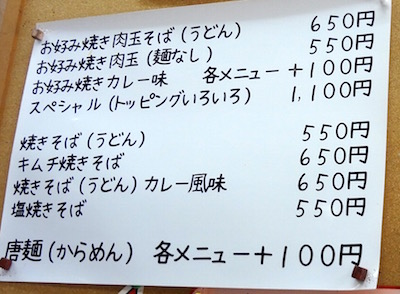 お好み焼き肉玉そば(うどん) 650円
お好み焼き肉玉(麺なし) 550円
お好み焼きカレー味 各メニュー+100円
スペシャル(トッピングいろいろ) 1,100円
焼きそば(うどん) 550円
キムチ焼きそば 650円
焼きそば(うどん)カレー風味 650円
塩焼きそば 550円
唐麺(からめん) 各メニュー+100円